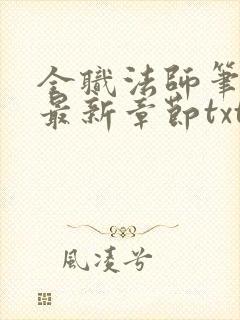 全職法師筆
最新章節txt
風凌兮